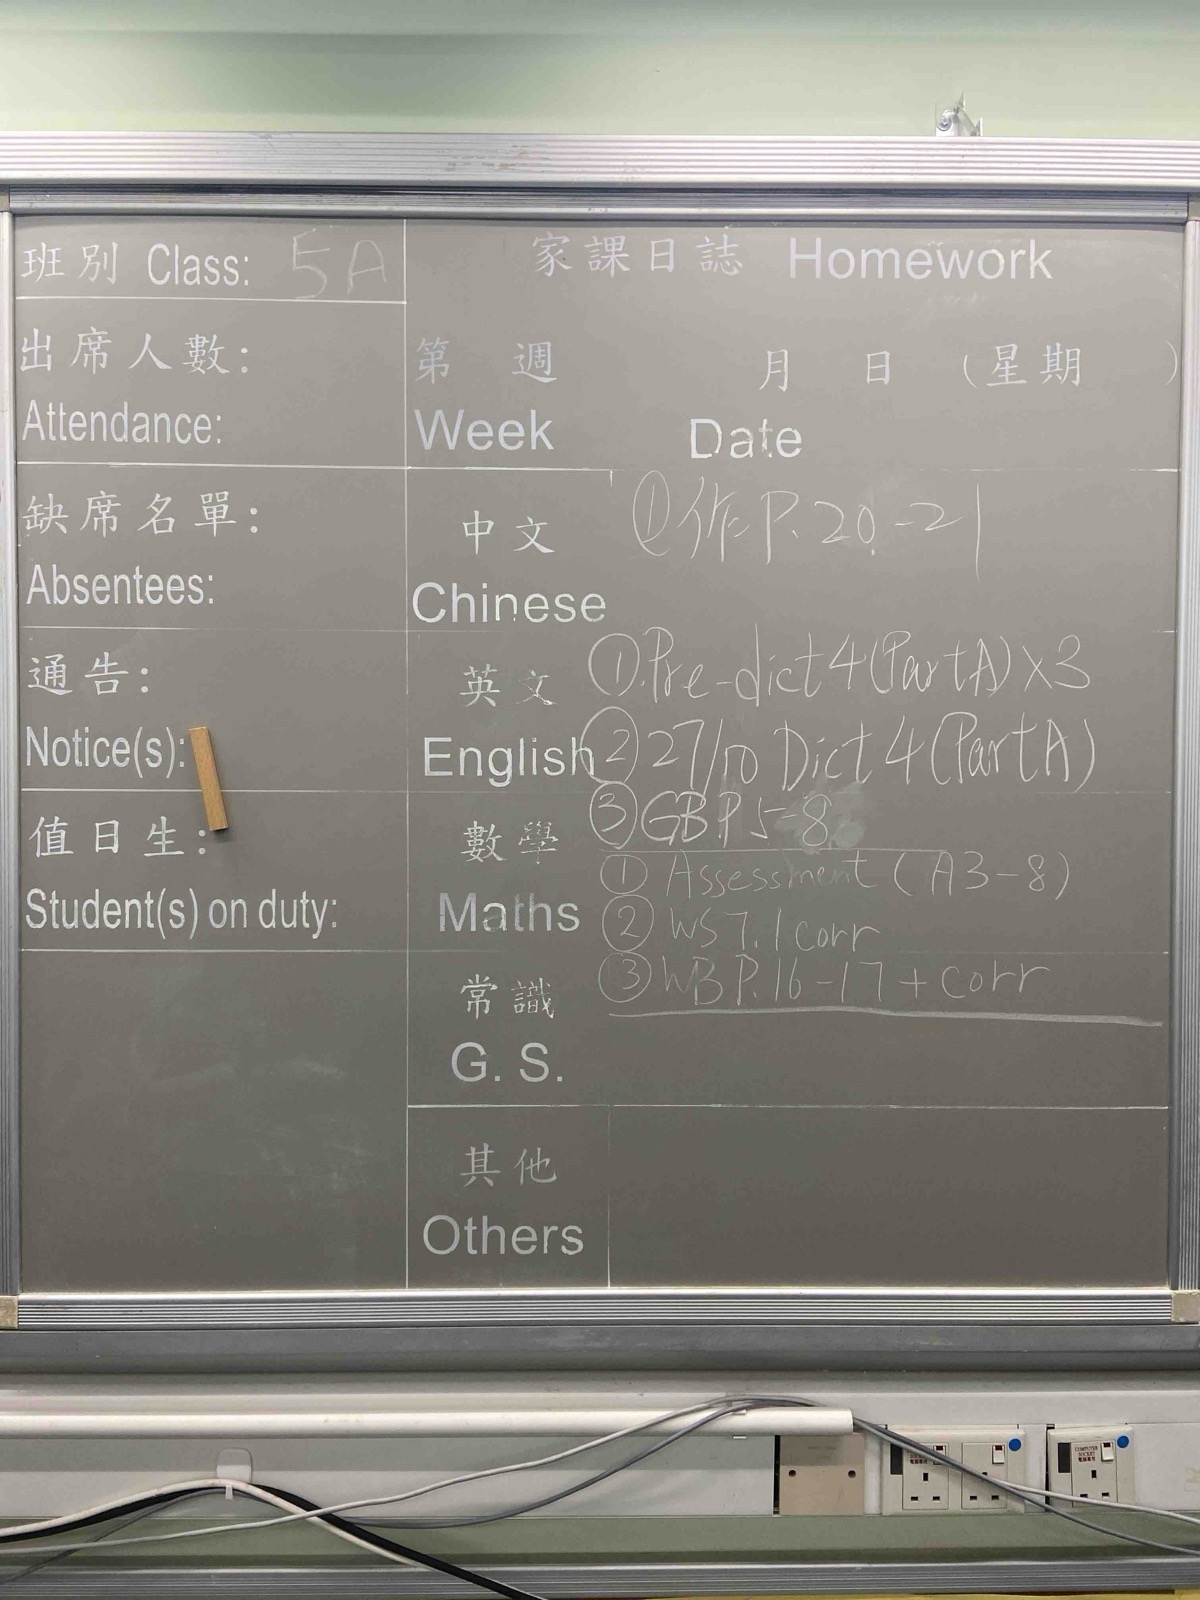 班別 Class: 5A
出席人數:
Attendance:
缺席名單:
Absentees:
通告:
Notice(s):
值日生:
Student(s) on duty:
家課日誌 Homework
第 週 月 日 (星期 )
Week Date
中文 ①作P.20-21
Chinese
英文 ①.Pre-dict 4(Part A)x3
English ②27/10 Dict 4(Part A)
③GB P.5-8
數學 ① Assessment (A3-8)
Maths ② WS 7.1 corr
③ WB P.16-17 + corr
常識
G. S.
其他
Others
COMPUTER SOCKET
電腦專用
COMPUTER SOCKET
電腦專用